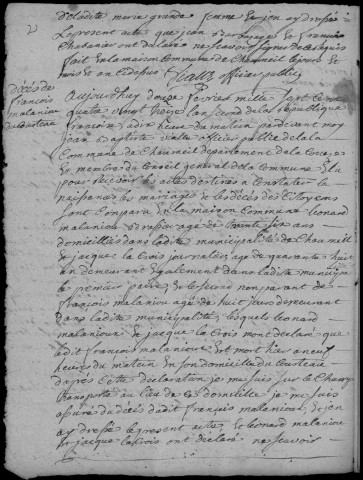 2
de ladite marie grande femme et jen ay dressé
le present acte que jean et francois
Chabanier ont declare ne scavoir signer de ce requis
fait en la maison commune de chaumeil le jour
mois et an cy dessus officier public
décès de
françois
malaniou
Aujourdhuy douze fevrier mille sept cent
quatre vingt treize lan second de la republique
francoise a dix heures du matin pardevant moy
jean Baptiste officier public de la
Commune de Chaumeil departement de la Correze
membre du conseil general de la commune elu
pour recevoir les actes destines a constater les
naissances les mariages et les deces des Citoyens
sont comparu en la maison commune leonard
malaniou agé de trente six ans
domicilies dans ladite municipalité de Chaumeil
et jacque la Croix journalier agé de quarante huit
an demeurant egalement dans ladite municipalité
le premier pere et le second non parant de
françois malaniou agé de huit jours demeurant
dans ladite municipalité, lesquels leonard
malaniou et jacque la Croix mont declaré que
ledit françois malaniou est mort hier a neuf
heures du matin en son domicille du
dapres cette declaration je me suis sur le Champ
transporté au lieu de ce domicille je me suis
assuré du deces dudit françois malaniou et jen
ay dressé le present acte et leonard malaniou
et jacque lacroix ont déclaré ne scavoir